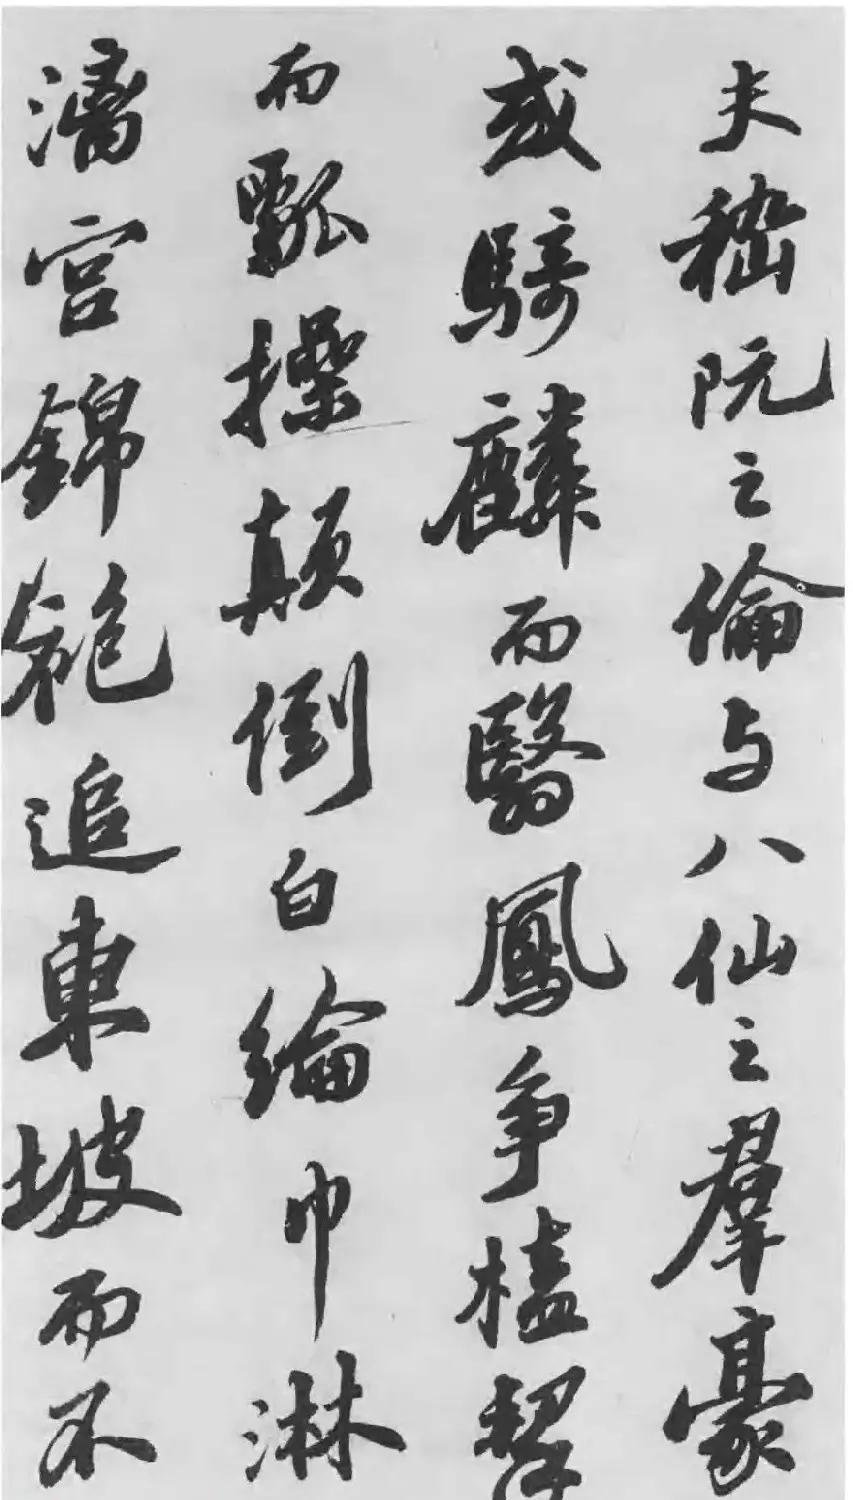 夫嵇阮之倫与八仙之羣豪
或騎麟而翳鳳爭榼挈
而瓢操顛倒白綸巾淋
漓宮錦袍追東坡而不